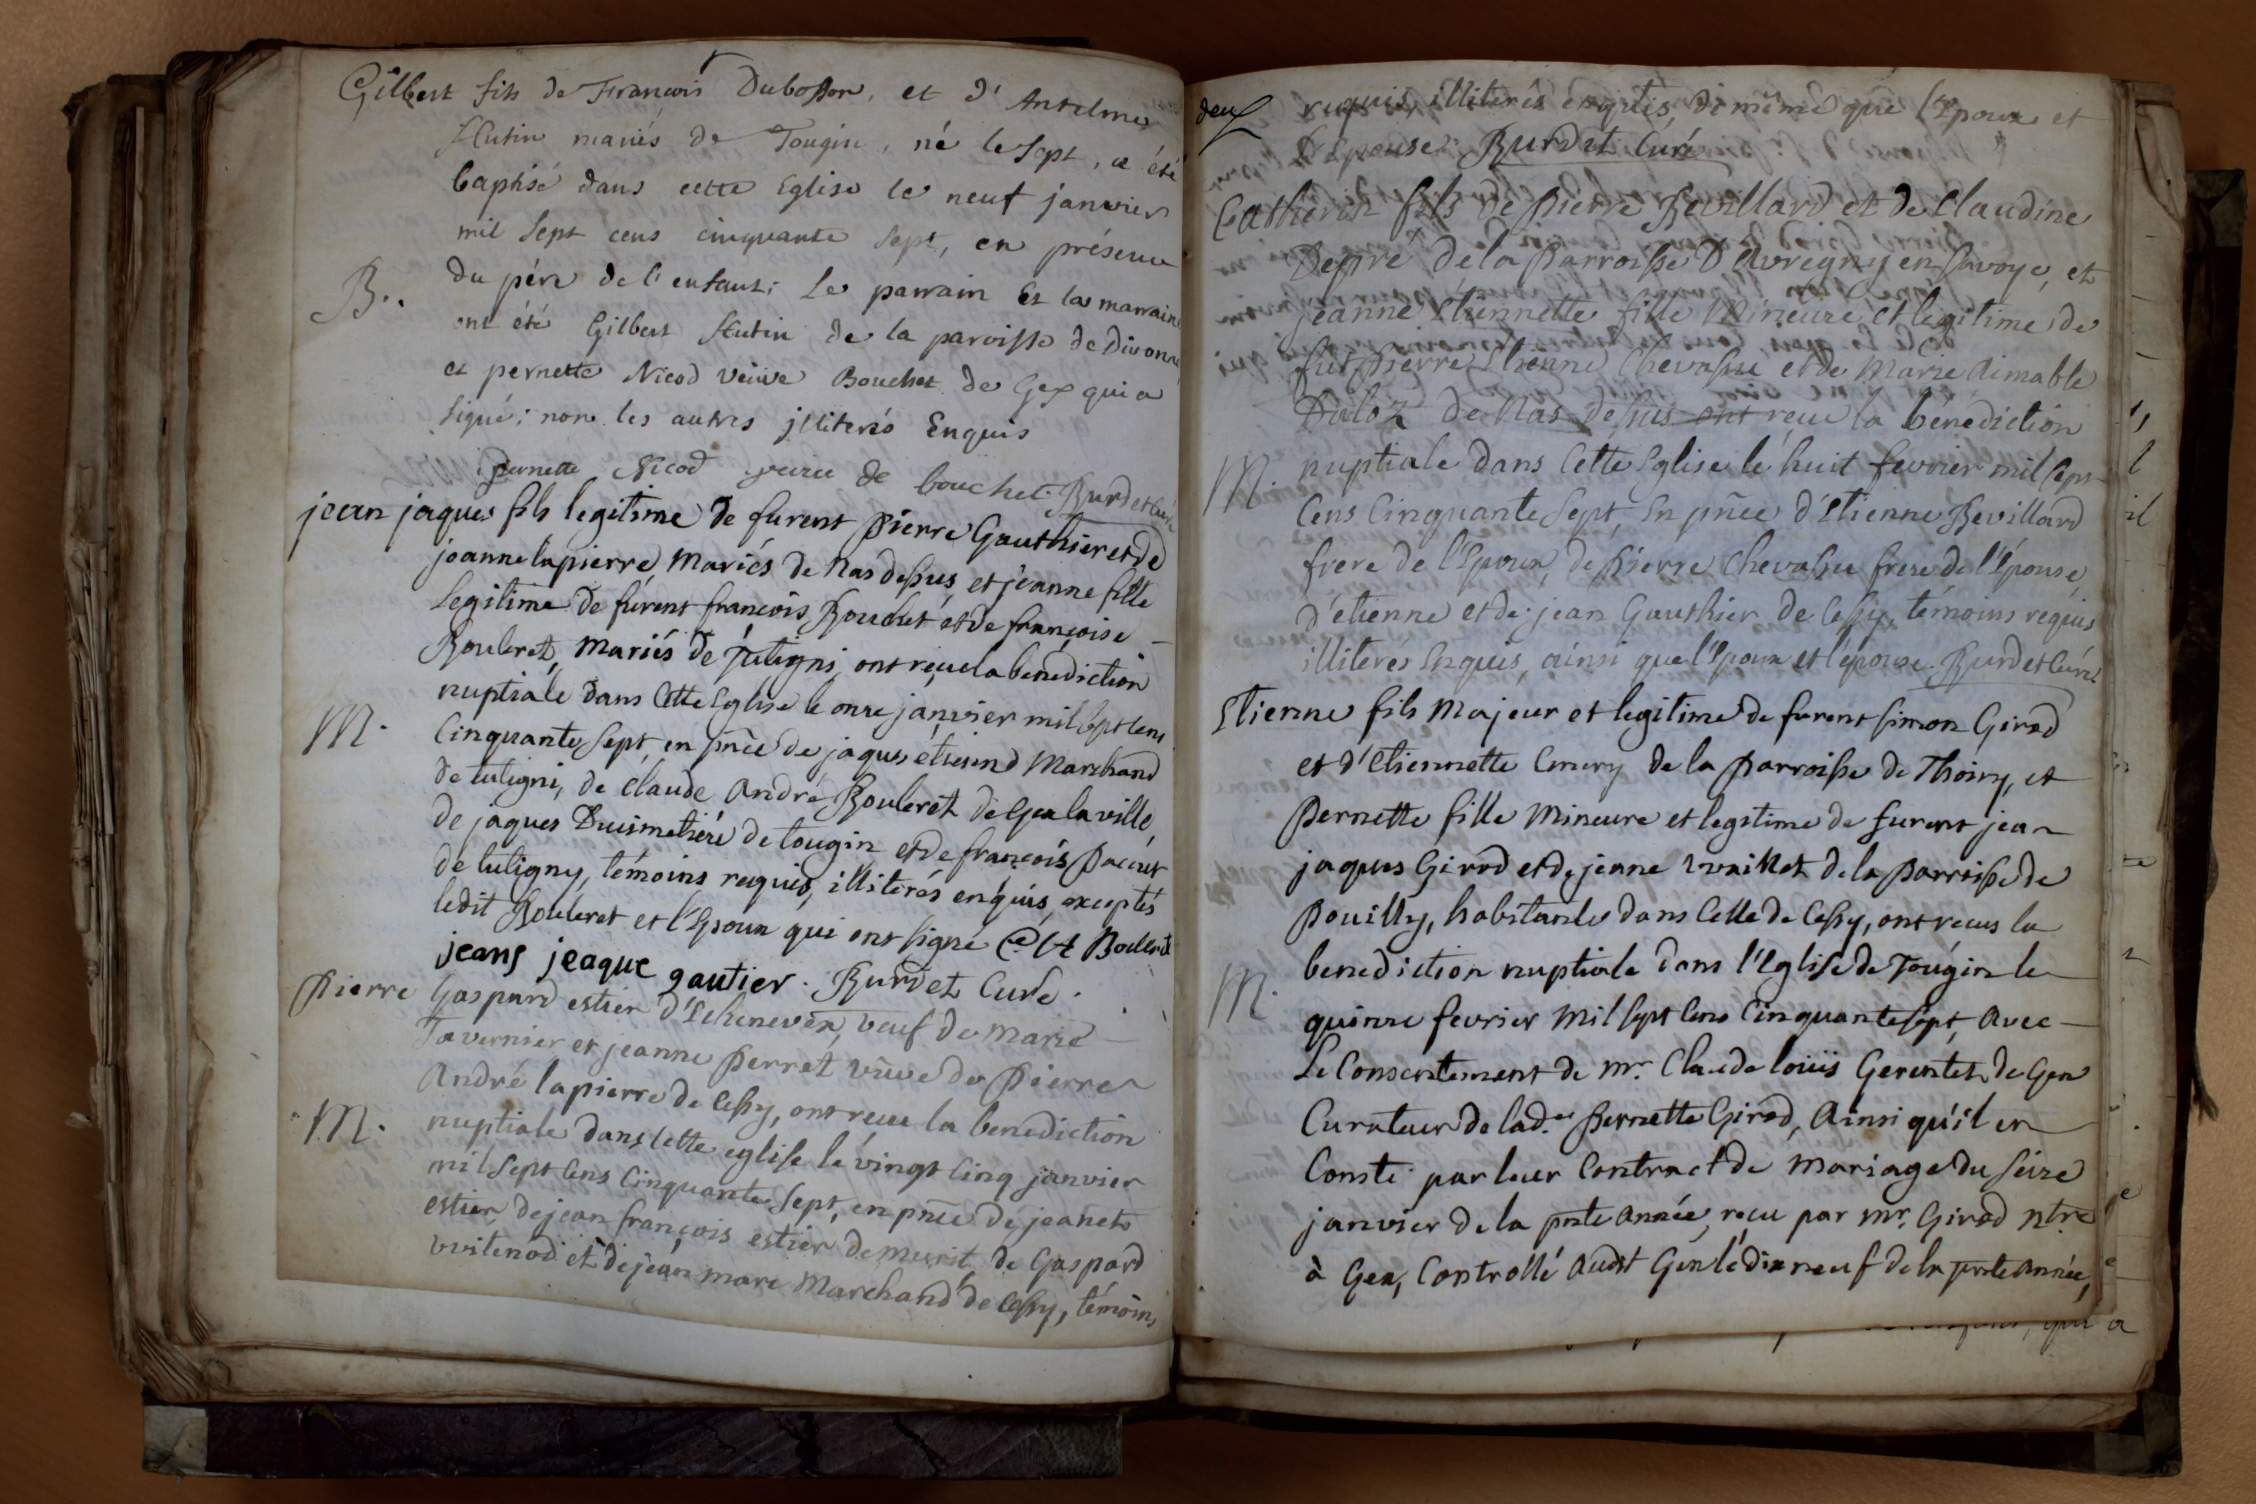 Gilbert fils de François Dubosson, et d'Antelme
Hutin mariés de Tougin, né le sept, a été
baptisé dans cette Eglise le neuf janvier
mil sept cens cinquante sept, en présence
B.. du pére de l'enfant; Le parrain Et la marraine
ont été Gilbert Hutin de la paroisse de Divonne
et pernette Nicod veuve Bouchet de Gex qui a
signé; non les autres jlliterés Enquis
pernette Nicod veuve de bouchet. Burdet Curé
jean jaques fils legitime de furent pierre Gauthier et de
joanne lapierre Mariés de Nas dessus, et jeanne fille
Legitime de furent françois Bouchet et de françoise
Bouleret, Mariés de tutigni, ont reçu la benediction
nuptiale dans Cette Eglise le onze janvier mil sept cens
M. Cinquante sept, en pñce de jaques etienne Marchand
de tutigni, de claude André Bouleret de Gex la ville,
de jaques Duismetiére de tougin et de françois
de tutigny, témoins requis, illiterés enquis, exceptés
ledit Bouleret et l'Epoux qui ont signé C. A Bouleret
jeans jeaque gautier. Burdet Curé.
Pierre Gaspard estier d'Echenevex, veuf de Marie
Tavernier et jeanne Perret vũve de Pierre
André lapierre de Cessy, ont receu la benediction
M. nuptiale dans Cette eglise lé vingt Cinq janvier
mil sept Cens Cinquante sept, en pñce de jeañet
estier, de jean françois estier de Murit, de Gaspard
vvitenod et de jean marc Marchand de Cessy, témoins
deux requis, illiterés enquis, de même que l'Epoux et
l'Epouse. Burdet Curé
Catherin fils de Pierre Revillard et de Claudine
Depré de la Parroisse D'Avregny en Savoye, et
jeanne Etiennette fille Mineure et legitime de
fut Pierre Etienne Chevassu et de Marie Aimable
Daloz de Nas dessus ont receu la bénediction
M. nuptiale dans Cette Eglise lé huit fevrier mil sept
Cens Cinquante sept, En pñce d'Etienne Revillard
frere de l'Epoux, de Pierre Chevassu frere de l'Epouse,
d'étienne et de jean Gauthier de Cessy, témoins requis
illiterés Enquis, ainsi que l'Epoux et l'épouse. Burdet Curé
Etienne fils Majeur et legitime de furent simon Girod
et d'Etiennette Emery de la Parroisse de Thoiry, et
Pernette fille Mineure et legitime de furent jean
jaques Girod et de jeanne vvaillet de la Parroisse de
Pouilly, habitante dans Celle de Cessy, ont receus la
M. benediction nuptiale dans l'Eglise de Tougin le
quinze fevrier Mil sept Cens Cinquante sept, avec
Le Consentement de mr. Claude loüis Gerentet de Gex
Curateur de lad.e Pernette Girod, Ainsi qu'il en
Conste par leur Contract de Mariage du seize
janvier de la pñte Année, recu par mr. Girod ntre
à Gex, Controllé Audit Gex lé dix neuf de la pñte Année,